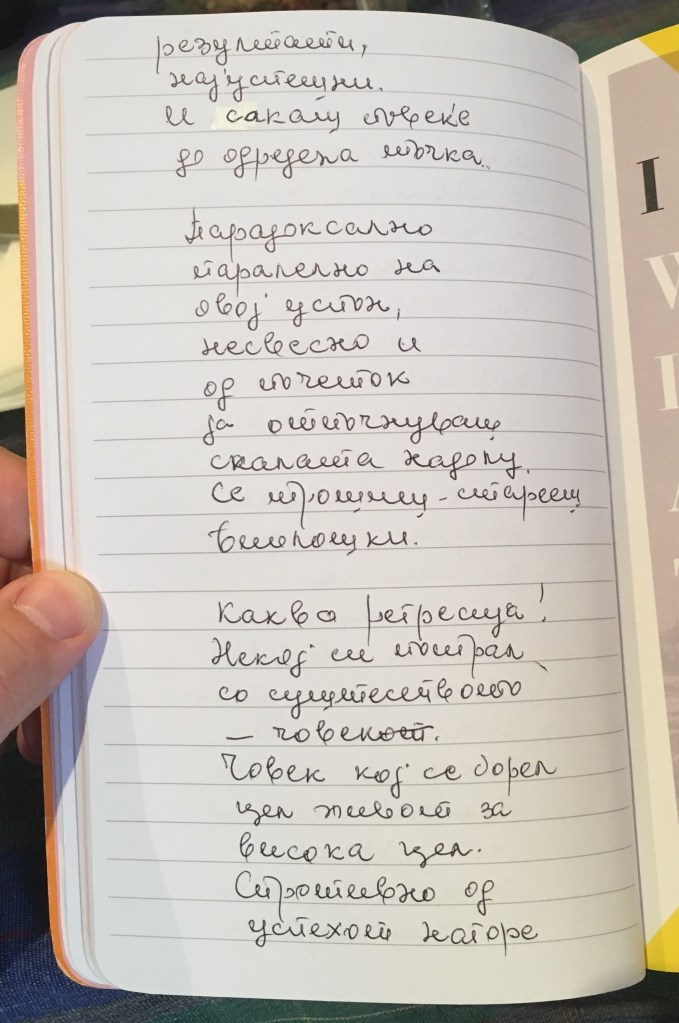 резултати,
најуспешни.
И сакаш повеќе
до одредена точка.
Парадоксално
паралелно на
овој успон,
несвесно и
од почеток
ја отпочнуваш
скалата надолу.
Се трошиш - стареш
вишпошки.
Каква регресија!
Некој си поиграл
со суштеството
- човекот.
Човек кој се борел
цел живот за
висока цел.
Спротивно од
успехот нагоре
I
W
I
A